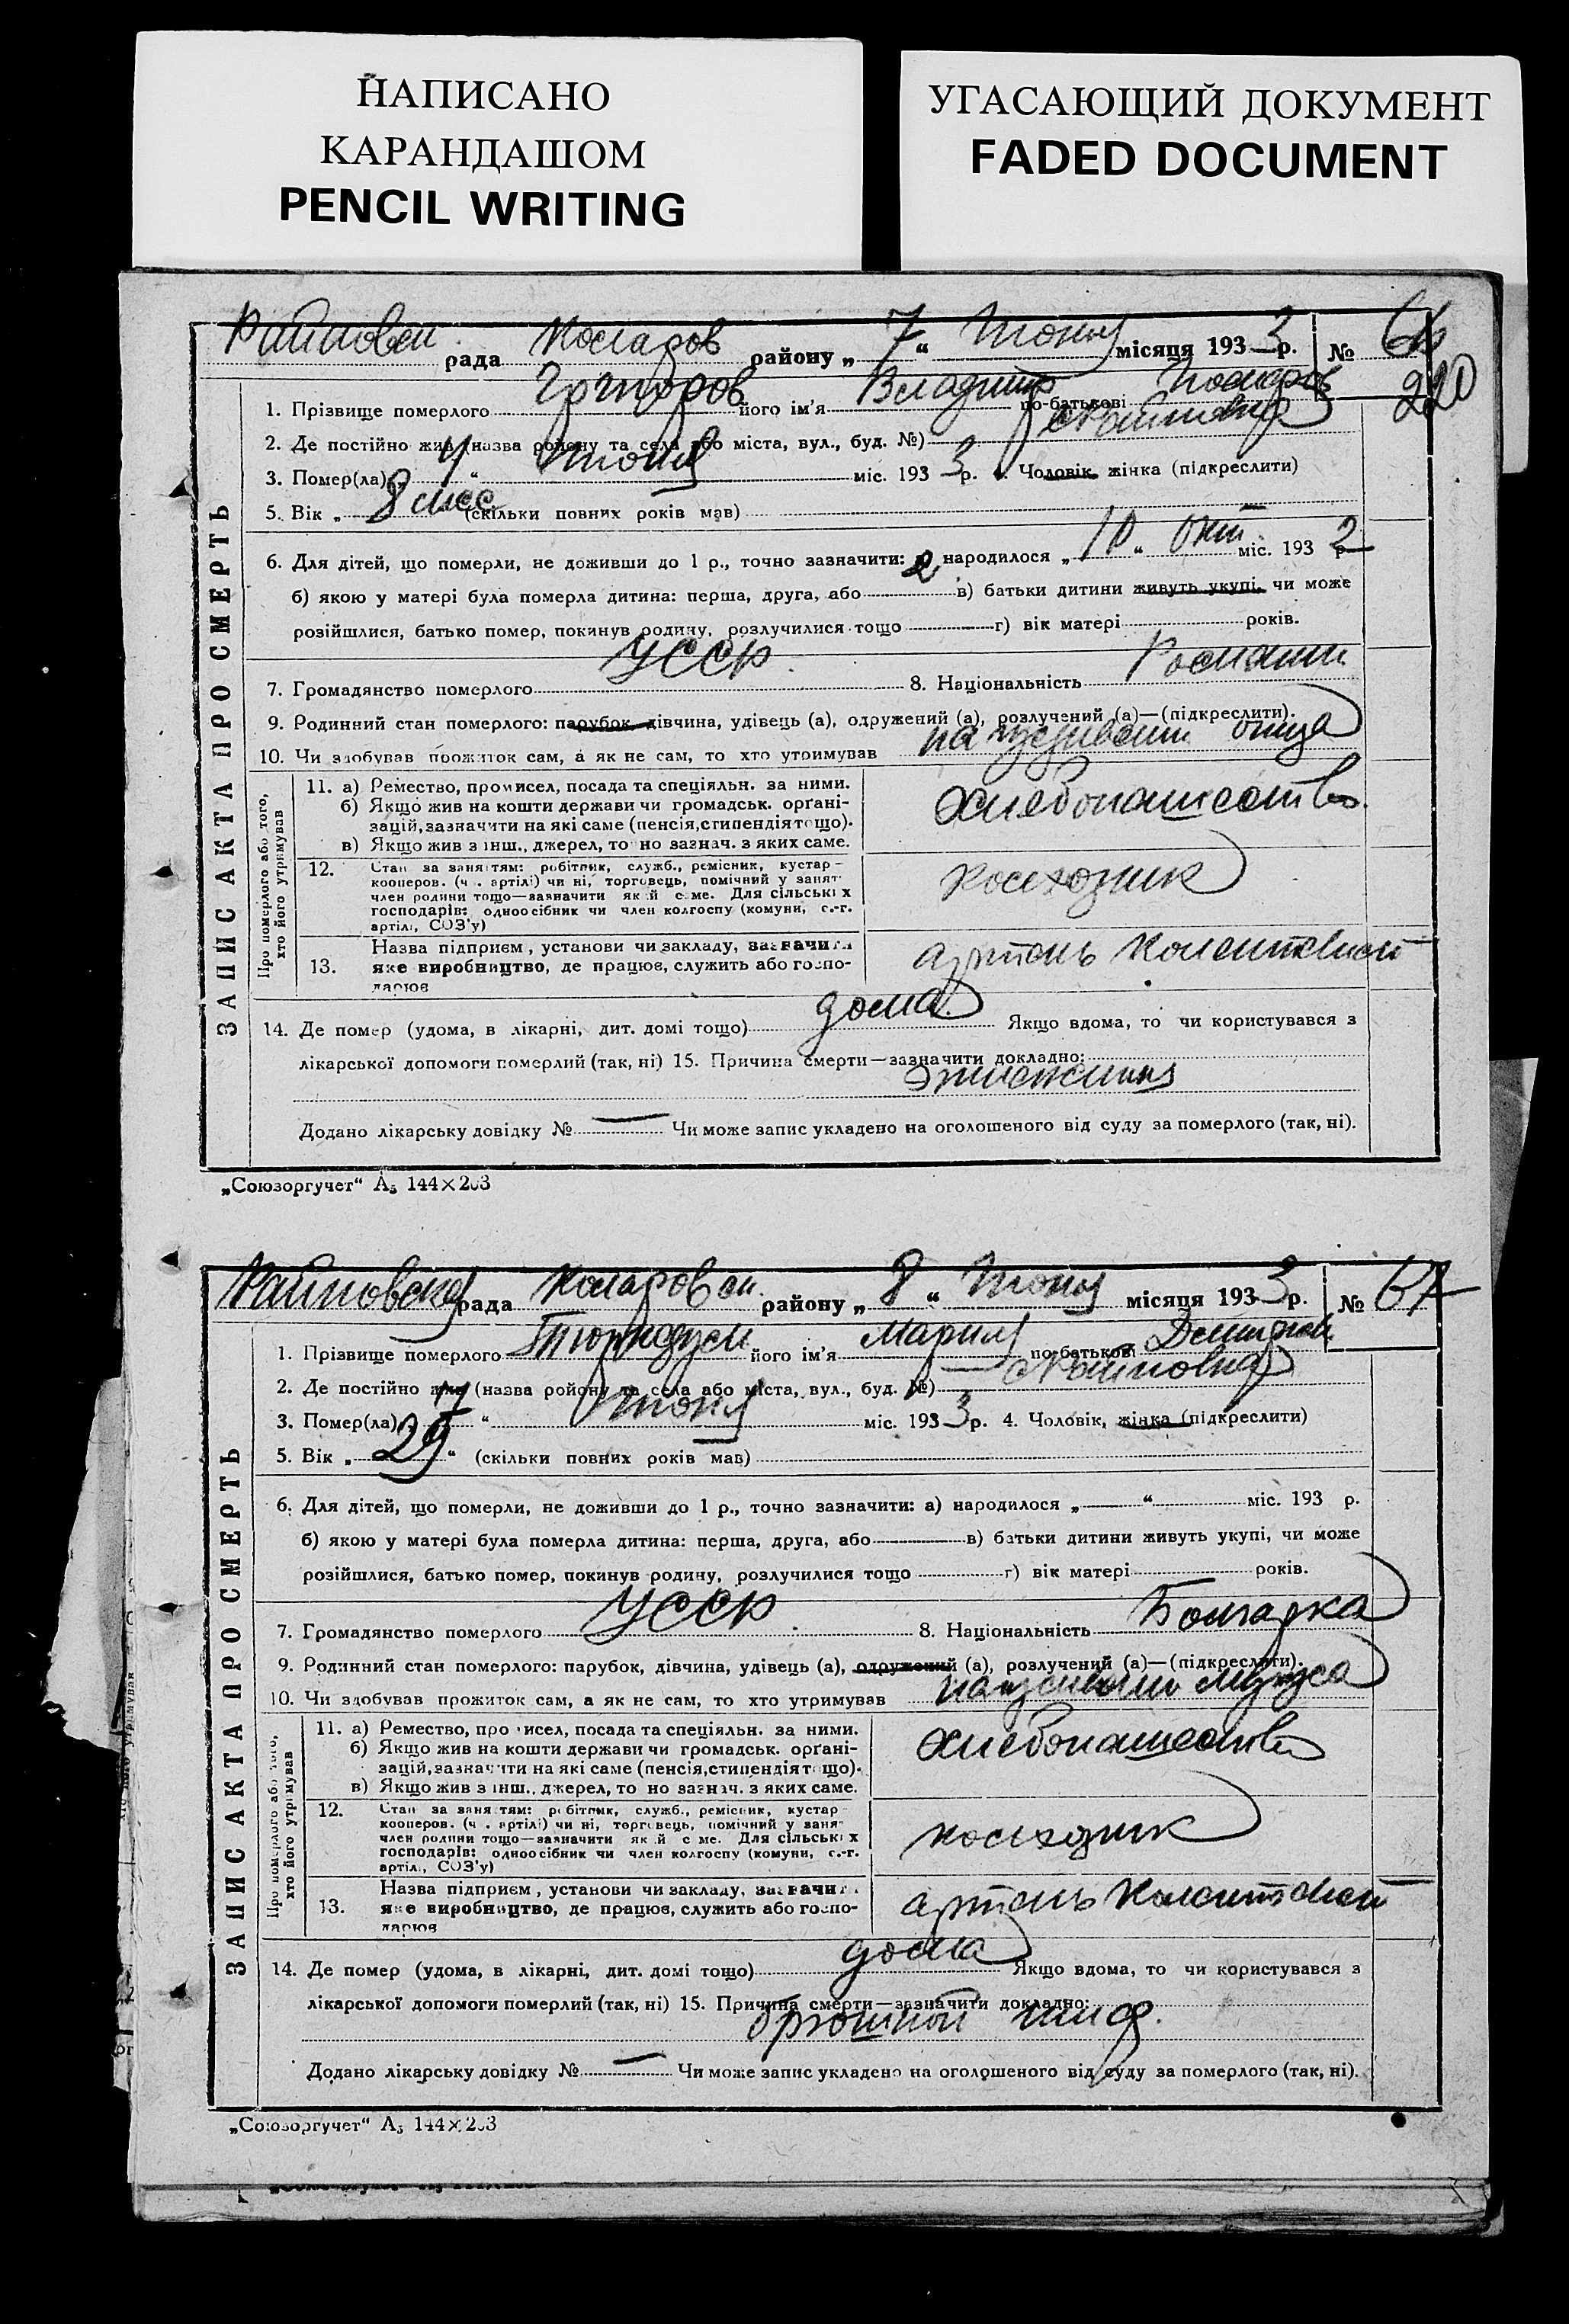 НАПИСАНО
КАРАНДАШОМ
PENCIL WRITING
УГАСАЮЩИЙ ДОКУМЕНТ
FADED DOCUMENT
рада Коларов району „ 7 “ Июня місяця 193 3 р. №
220
1. Прізвище померлого його ім'я Владимир по-батькові
2. Де постійно жив (назва ройону та села або міста, вул., буд. №)
3. Помер(ла) „ 4 “ Июня міс. 193 3 р. 4. Чоловік, жінка (підкреслити)
5. Вік „ 8 мес (скільки повних років мав)
6. Для дітей, що померли, не доживши до 1 р., точно зазначити: а) народилося „ 10 “ Окт. міс. 193 2 р.
б) якою у матері була померла дитина: перша, друга, або в) батьки дитини живуть укупі, чи може
розійшлися, батько помер, покинув родину, розлучилися тощо г) вік матері років.
7. Громадянство померлого УССР 8. Національність
9. Родинний стан померлого: парубок, дівчина, удівець (а), одружений (а), розлучений (а)—(підкреслити).
10. Чи здобував прожиток сам, а як не сам, то хто утримував на иждивении отца
ЗАПИС АКТА ПРО СМЕРТЬ
Про померлого або того, хто його утримував
11. а) Ремество, промисел, посада та спеціяльн. за ними.
б) Якщо жив на кошти держави чи громадськ. орґані-
зацій, зазначити на які саме (пенсія, стипендія тощо).
в) Якщо жив з інш., джерел, то но зазнач. з яких саме.
хлебопашество
12. Стан за заняттям: робітник, служб., ремісник, кустар-
кооперов. (ч . артілі) чи ні, торговець, помічний у занят
член родини тощо—зазначити як й саме. Для сільськ х
господарів: одноосібник чи член колгоспу (комуни, с.-г.
артілі, СОЗ'у)
колхозник
13. Назва підприєм, установи чи закладу, зазначити
яке виробництво, де працює, служить або госпо-
дарює
артель
14. Де помер (удома, в лікарні, дит. домі тощо) дома Якщо вдома, то чи користувався з
лікарської допомоги померлий (так, ні) 15. Причина смерти—зазначити докладно:
Додано лікарську довідку № — Чи може запис укладено на оголошеного від суду за померлого (так, ні).
„Союзоргучет“ А₅ 144×203
рада Коларовск. району „ 8 “ Июня місяця 193 3 р. № 67
1. Прізвище померлого його ім'я Мария по-батькові
2. Де постійно жив (назва ройону та села або міста, вул., буд. №)
3. Помер(ла) „ “ Июня міс. 193 3 р. 4. Чоловік, жінка (підкреслити)
5. Вік „ 29 “ (скільки повних років мав)
6. Для дітей, що померли, не доживши до 1 р., точно зазначити: а) народилося „ — “ міс. 193 р.
б) якою у матері була померла дитина: перша, друга, або в) батьки дитини живуть укупі, чи може
розійшлися, батько помер, покинув родину, розлучилися тощо г) вік матері років.
7. Громадянство померлого УССР 8. Національність Болгарка
9. Родинний стан померлого: парубок, дівчина, удівець (а), одружений (а), розлучений (а)—(підкреслити).
10. Чи здобував прожиток сам, а як не сам, то хто утримував на иждивении мужа
ЗАПИС АКТА ПРО СМЕРТЬ
Про померлого або того, хто його утримував
11. а) Ремество, про исел, посада та спеціяльн. за ними.
б) Якщо жив на кошти держави чи громадськ. орґані-
зацій, зазначити на які саме (пенсія, стипендія т щo).
в) Якщо жив з інш., джерел, то но зазнач. з яких саме.
хлебопашество
12. Стан за заняттям: робітник, служб., ремісник, кустар
кооперов. (ч . артілі) чи ні, торговець, помічний у заня
член родини тощо—зазначити як й с ме. Для сільськ х
господарів: одноосібник чи член колгоспу (комуни, с.-г.
артілі, СОЗ'у)
колхозник
13. Назва підприєм, установи чи закладу, зазначити
яке виробництво, де працює, служить або госпо-
дарює
артель
14. Де помер (удома, в лікарні, дит. домі тощо) дома Якщо вдома, то чи користувався з
лікарської допомоги померлий (так, ні) 15. Причина смерти—зазначити докладно:
брюшной тиф.
Додано лікарську довідку № — Чи може запис укладено на оголошеного від суду за померлого (так, ні).
„Союзоргучет“ А₅ 144×203